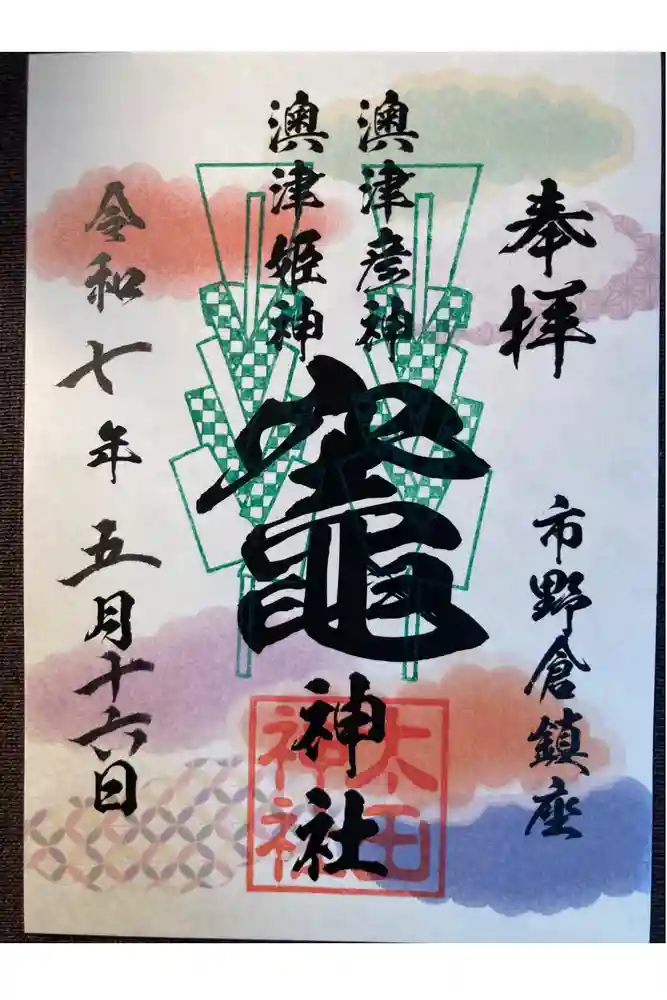 奉拝
市野倉鎮座
澳津彦神
澳津姫神
竈神社
太田
神社
令和七年五月十六日